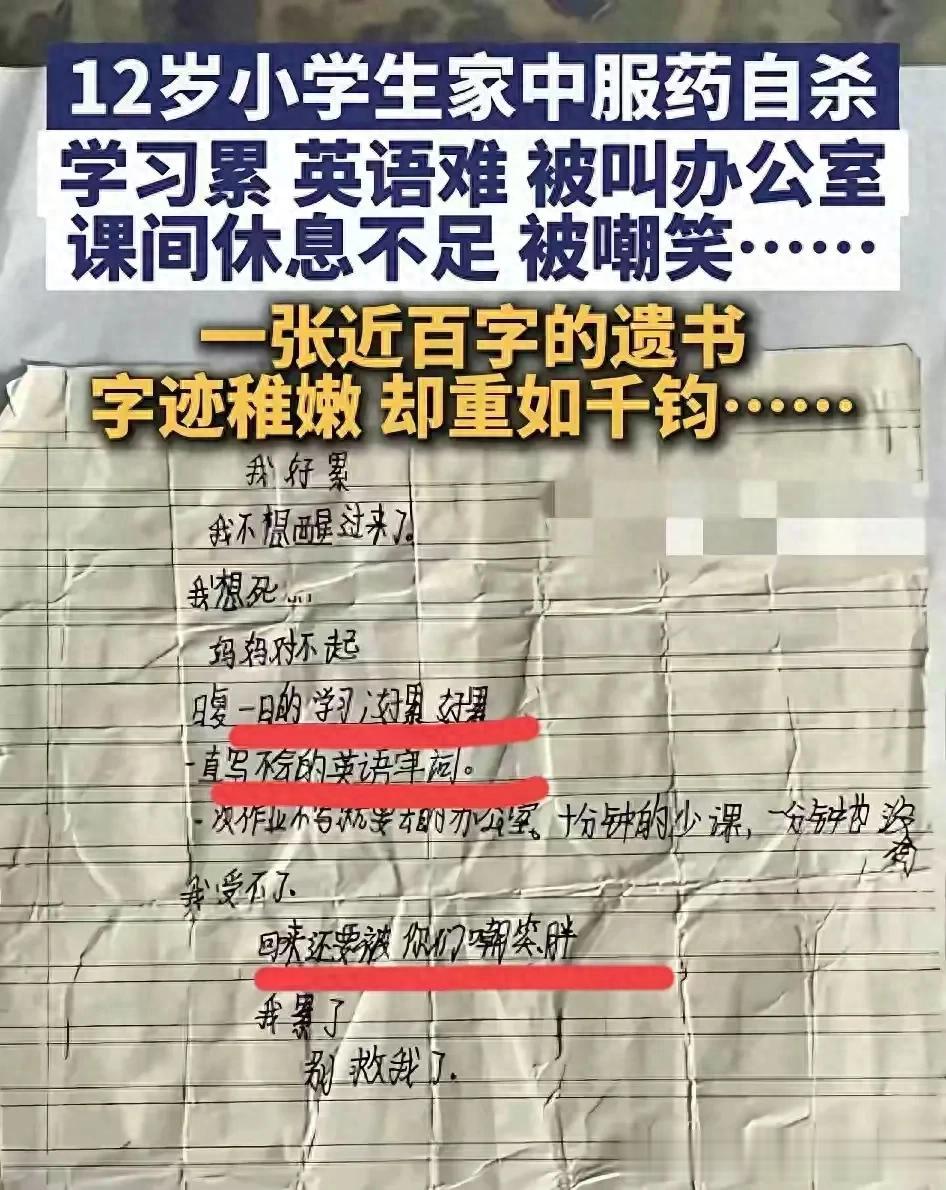 12岁小学生家中服药自杀
学习累 英语难 被叫办公室
课间休息不足 被嘲笑……
一张近百字的遗书
字迹稚嫩 却重如千钧……
我好累
我不想醒过来了。
我想死...
妈妈对不起
日复一日的学习,好累 好累
一直写不会的英语单词。
一次作业不写就要去的办公室。十分钟的少课,一分钟也没有
我受不了
回来还要被你们嘲笑胖
我累了
别救我了.